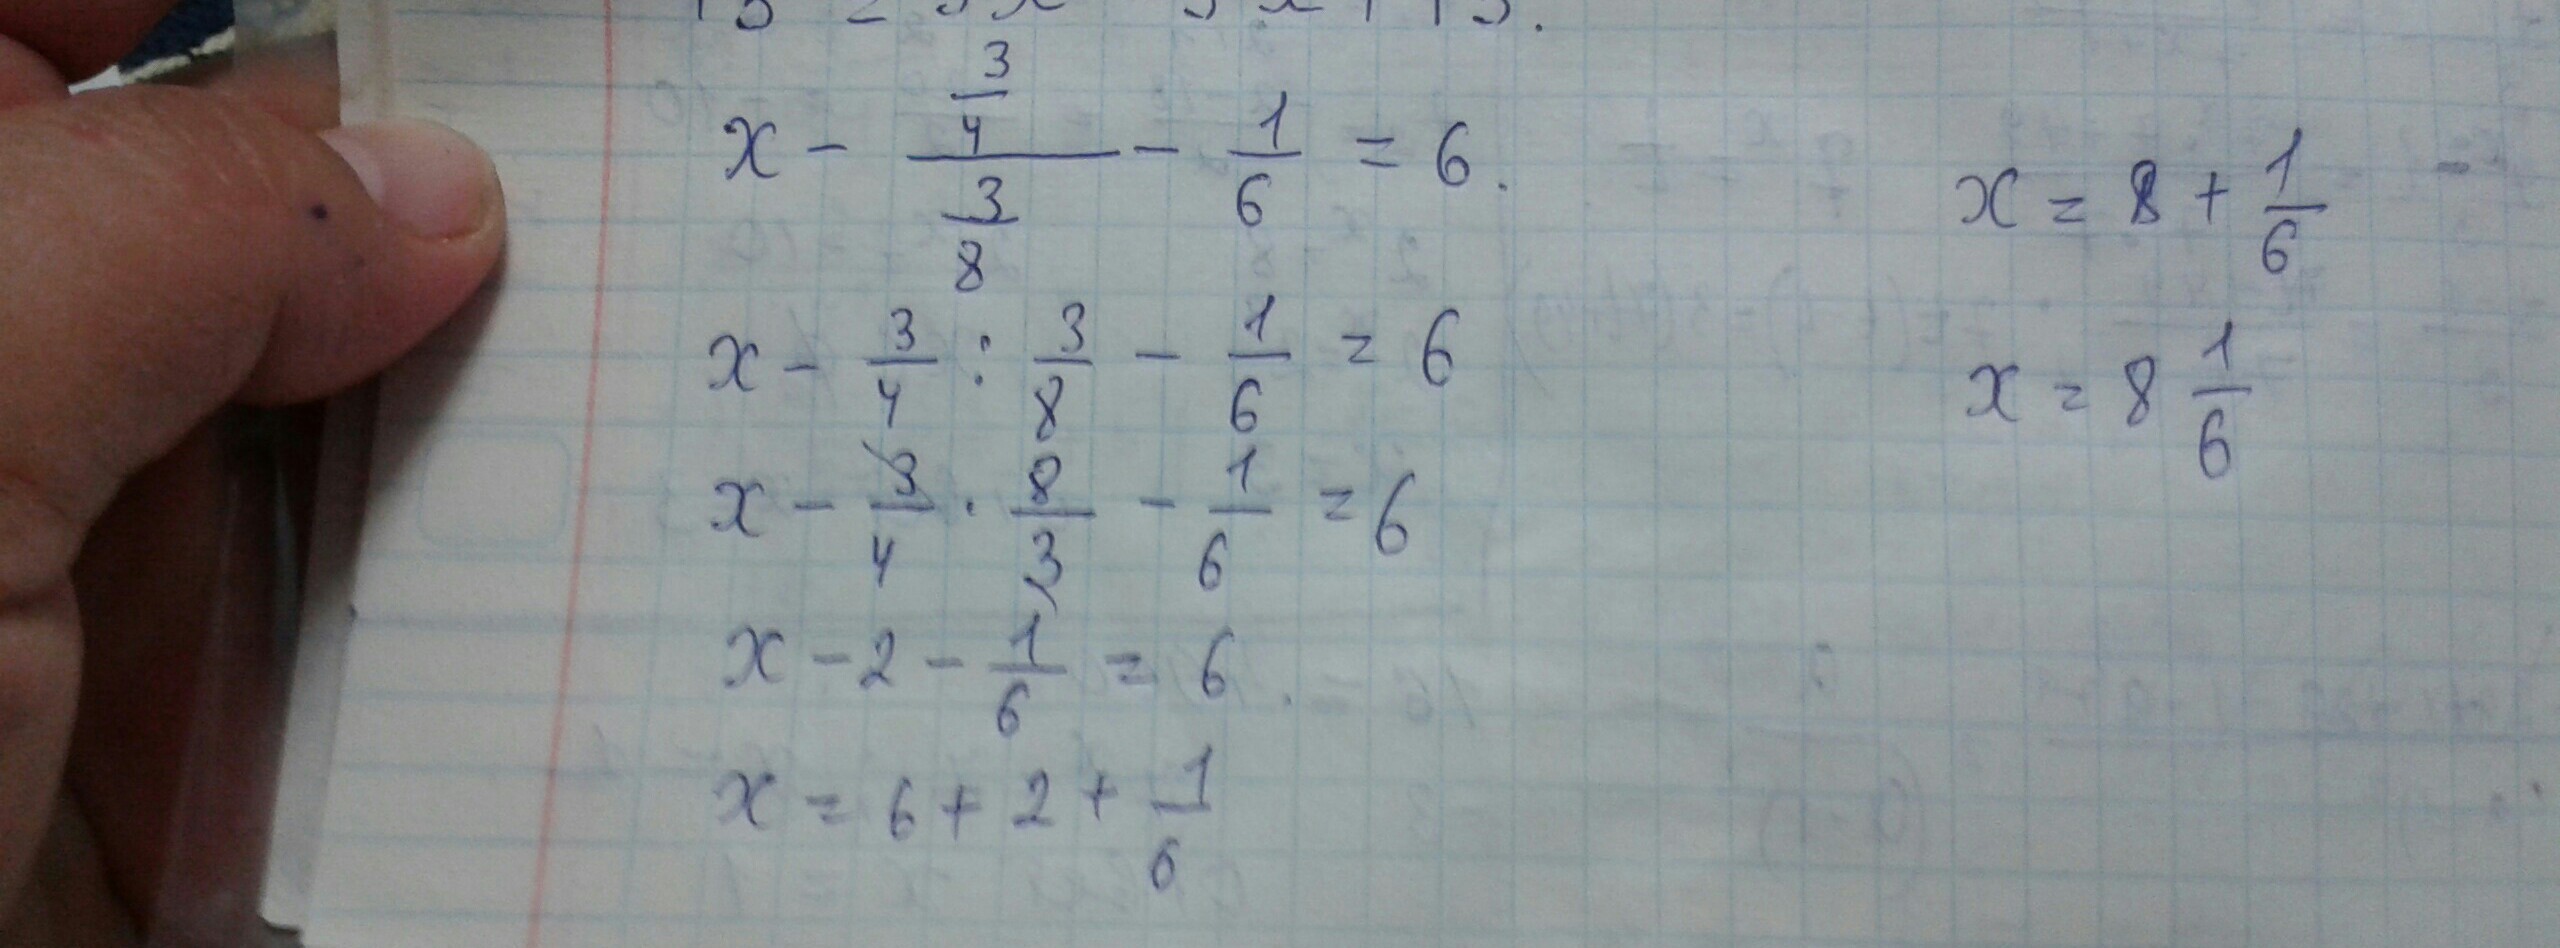 x - (3/4)/(3/8) - 1/6 = 6.
x - 3/4 : 3/8 - 1/6 = 6
x - 3/4 · 8/3 - 1/6 = 6
x - 2 - 1/6 = 6.
x = 6 + 2 + 1/6
x = 8 + 1/6
x = 8 1/6